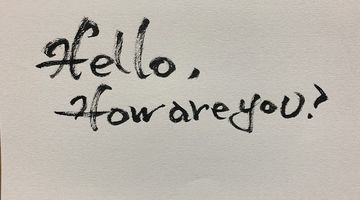 Hello.
How are you?